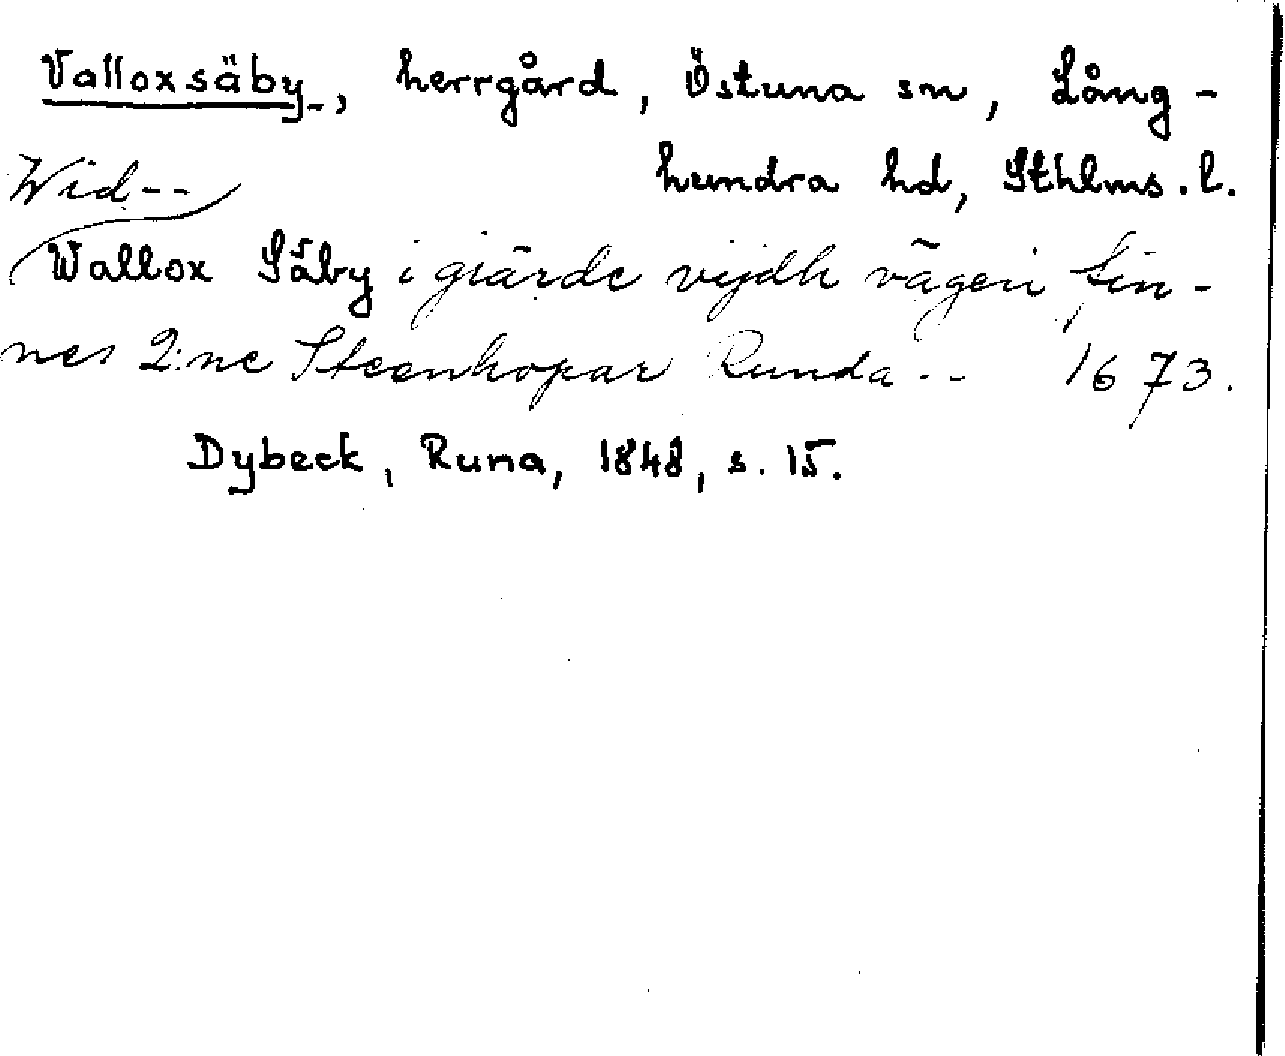 Valloxsäby, herrgård, Östuna sn, Lång-
hundra hd, Sthlms. l.
Wid--
Wallox Säby i giärde vijdh vägen fin-
nes 2:ne Steenhopar Runda -- 1673.
Dybeck, Runa, 1848, s. 15.